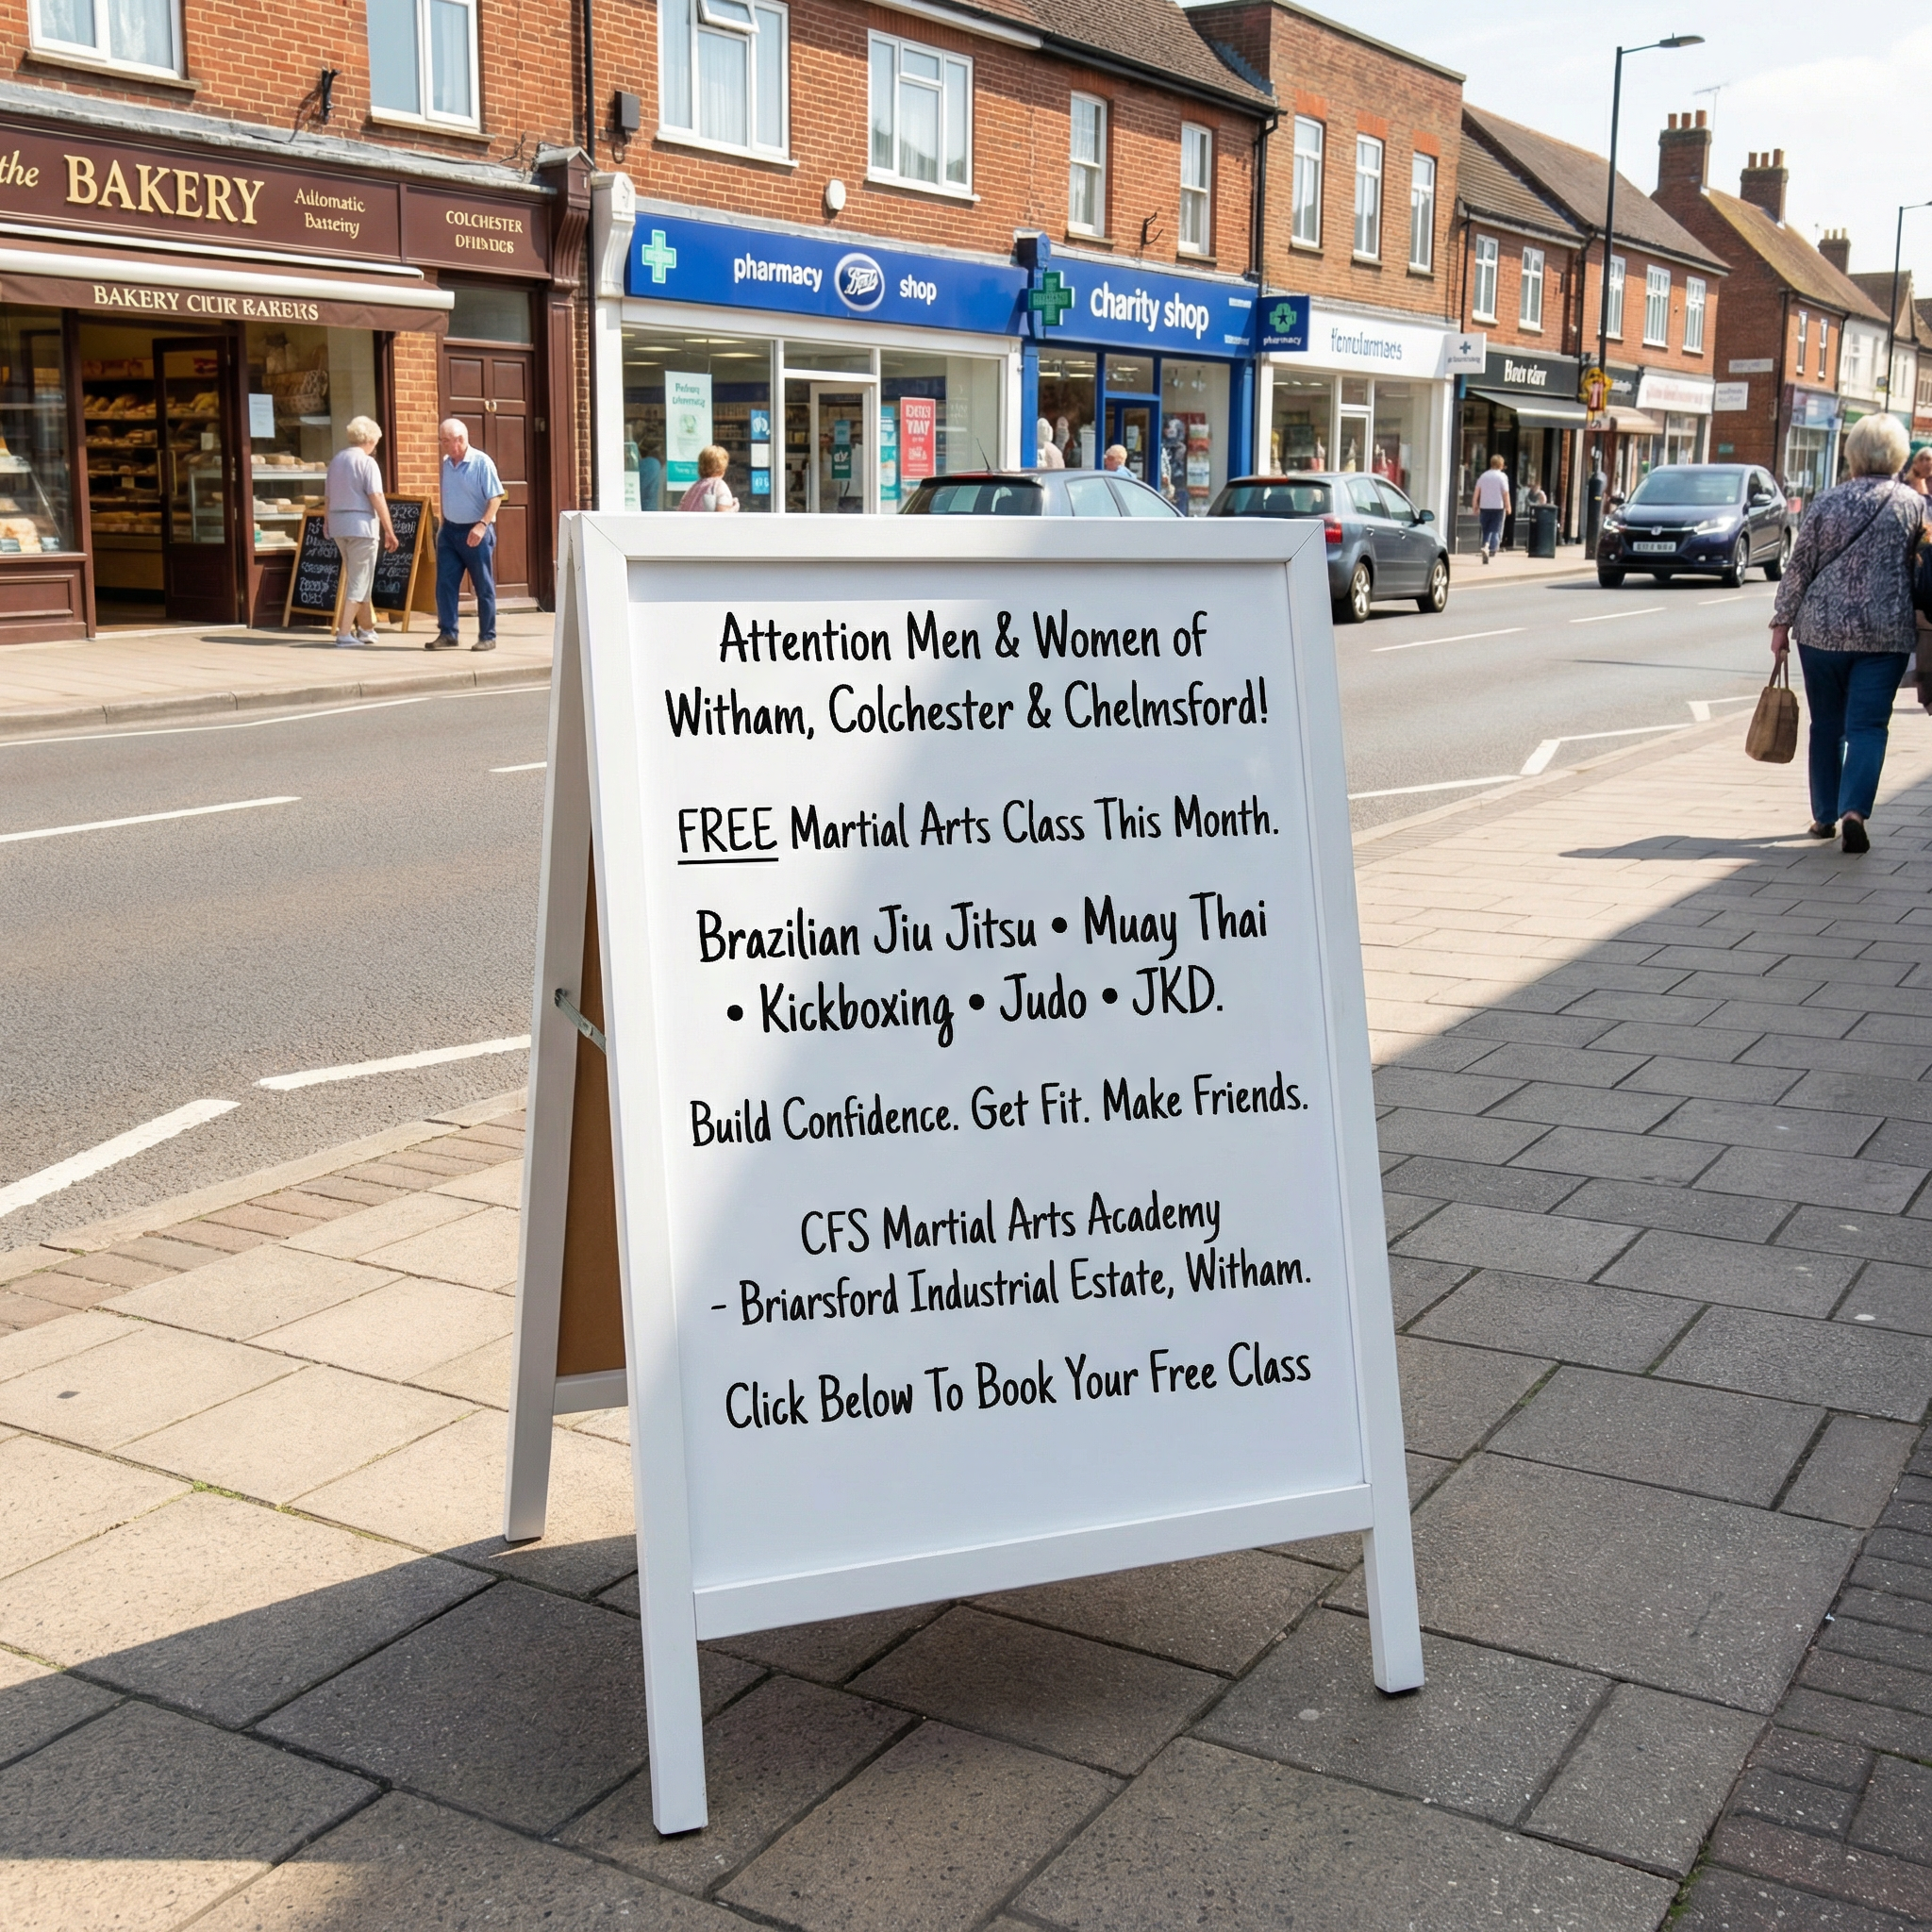 the BAKERY
COLCHESTER
pharmacy Boots shop
charity shop
pharmacy
Attention Men & Women of
Witham, Colchester & Chelmsford!
FREE Martial Arts Class This Month.
Brazilian Jiu Jitsu • Muay Thai
• Kickboxing • Judo • JKD.
Build Confidence. Get Fit. Make Friends.
CFS Martial Arts Academy
- Briarsford Industrial Estate, Witham.
Click Below To Book Your Free Class